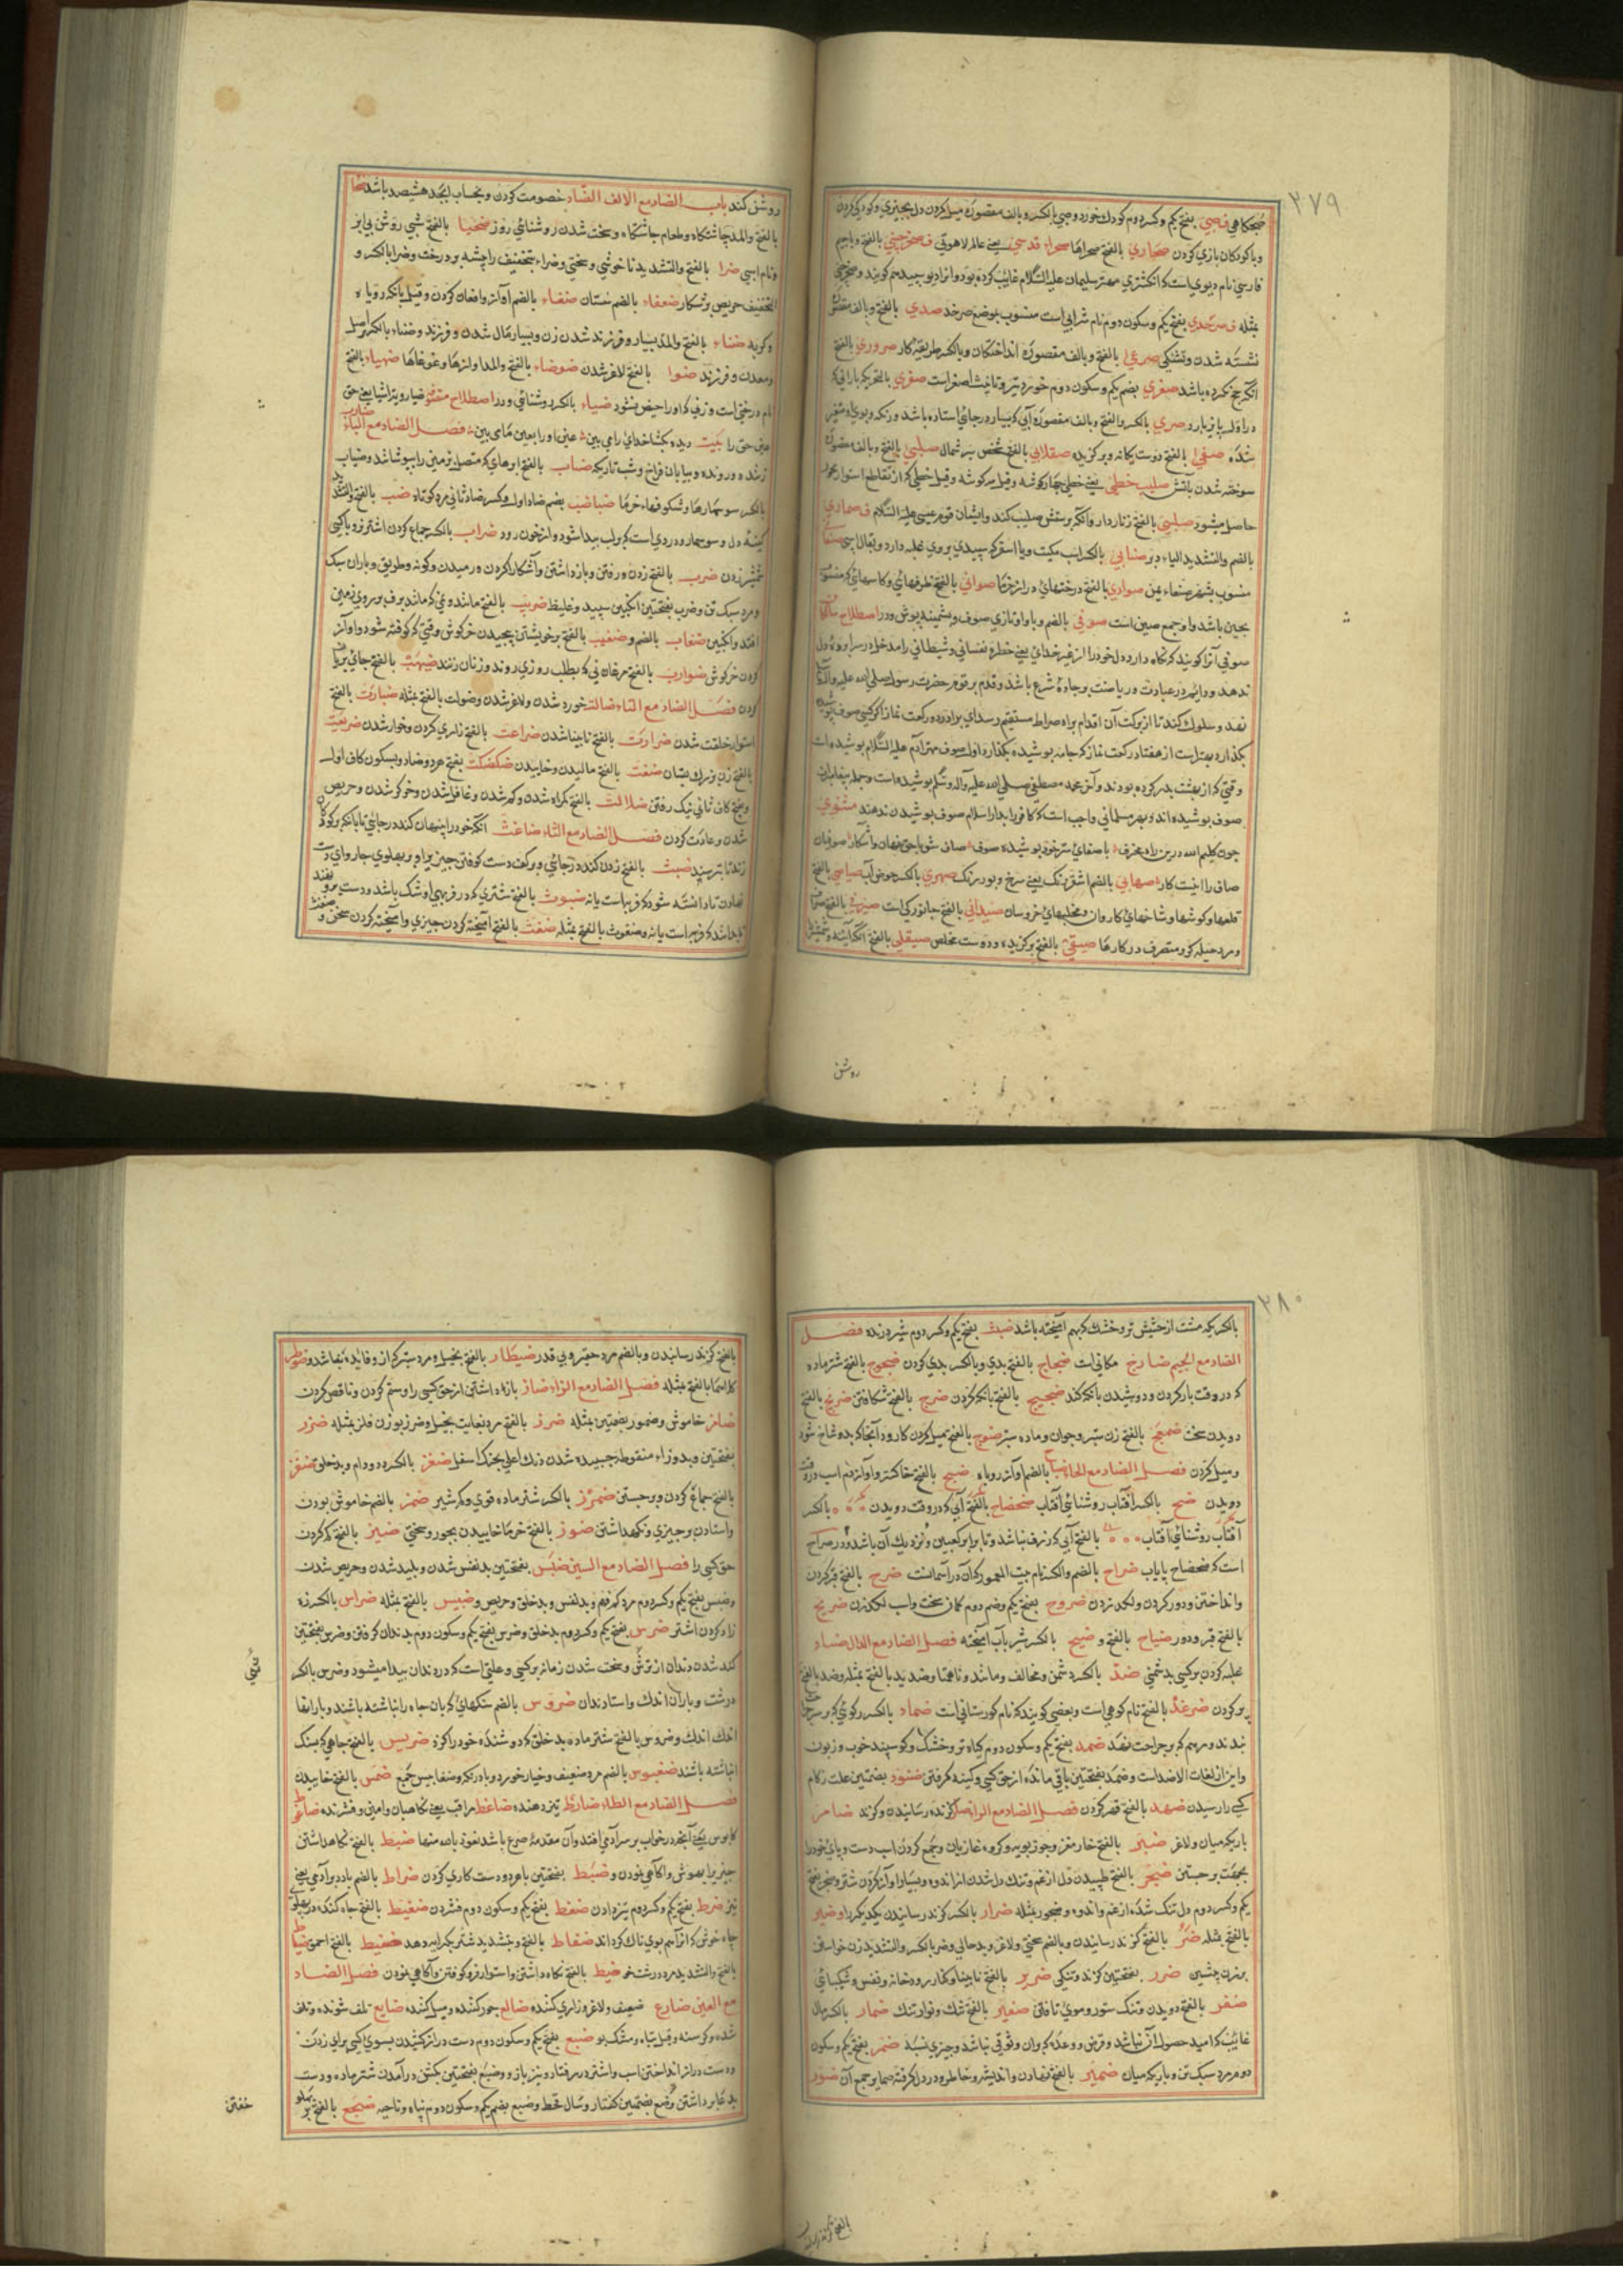 ۲۷۹
ضحکاهی ف صبی بفتح یکم وکسر دوم کودک خورد وصبی بالکسر وبالف مقصوره میل کردن دل بچیزی وکودکی کردن
وباکودکان بازی کردن صحاری بالفتح صحراها صحراء قدسی یعنی عالم لاهوتی ف صخر جنی بالفتح وباجیم
فارسی نام دیوی است که انکشتری مهتر سلیمان علیه السلام غایب کرده بود
بمثله ف صرخدی بفتح یکم وسکون دوم نام شرابی است منسوب بموضع صرخد صدی بالفتح وبالف مقصوره
تشنه شدن وتشنکی صرعی بالفتح وبالف مقصوره انداختکان وبالکسر طریقه کار صروری بالفتح
انکه حج نکرده باشد صغری بضم یکم وسکون دوم خوردتر وتانیث اصغر است صفری بالفتح
صری بالکسر والفتح وبالف مقصوره آبی که بسیار در جائی استاده باشد ورنک وبوی او متغیر
شده صفی بالفتح دوست یکانه وبرکزیده صقلابی بالفتح صلی بالفتح وبالف مقصوره
سوخته شدن بآتش صلیب خطی یعنی خطی چهارکوشه وقیل سه کوشه وقیل خطی که از تقاطع استوا ومحور
حاصل میشود صلیبی بالفتح زناردار وانکه پرستش صلیب کند وایشان قوم عیسی علیه السلام ف صماری
بالضم والتشدید الیاء دبر صنابی بالکسر اسب کمیت ویا اسقر که سپیدی بر وی غلبه دارد
منسوب بشهر صنعاء یمن صوادی بالفتح درختهای دراز خرما صوانی بالفتح ظرفهای وکاسهای که منسوب
بچین باشد واو جمع صین است صوفی بالضم وباواو تازی صوف وپشمینه پوش ودر اصطلاح سالکان
صوفی آنرا کویند که نکاه دارد دل خود را از غیر خدای یعنی خطره نفسانی وشیطانی را مدخل در سراپرده دل
ندهد ودایم در عبادت وریاضت بر جاده شرع باشد وقدم بر قدم حضرت رسول صلی الله علیه وآله
نهد وسلوک کند تا از برکت آن اقدام براه صراط مستقیم رسد ای برادر دو رکعت نماز اکر کسی صوف پوشیده
بکذارد بهتر است از هفتاد رکعت نماز که جامه پوشیده بکذارد اول صوف مهتر آدم علیه السلام پوشیده است
وقتی که از بهشت بدر کرده بودند وآخر محمد مصطفی صلی الله علیه وآله وسلم پوشیده است وجمله پیغامبران
صوف پوشیده اند وبهر مسلمانی واجب است که کافر را بدار اسلام صوف پوشیدن ندهند مثنوی
چون کلیم الله درین راه باصفای سر خود پوشیده صوف صاف شو باحق نهان وآشکار صوفیان
صاف را اینست کار صهابی بالضم اشقر رنک یعنی سرخ وبور رنک صهری بالکسر حوض آب صیاصی بالفتح
قلعها وکوشها وشاخهای کاروان ومخلبهای خروسان صیدانی بالفتح جانورکی است صیرفی بالفتح
ومرد حیله کر ومتصرف در کارها صیقی بالفتح برکزیده ودوست مخلص صیقلی بالفتح
روشن
روشن کند باب الضاد مع الالف الضاد خصومت کردن وبحساب ابجد هشیصد باشد ضحا
بالفتح والمد چاشتکاه وطعام چاشتکاه وسخت شدن روشنائی روز ضحیا بالفتح شبی روشن بی ابر
ونام اسپی ضرا بالفتح والتشدید ناخوشی وسختی وضراء بتخفیف
التخفیف حریص بر شکار ضعفاء بالضم سستان ضغاء بالضم آواز وافغان کردن وقیل بانک روباه
وکربه ضناء بالفتح والمد بسیار فرزند شدن زن وبسیار مال شدن وفرزند وضناء بالکسر اصل
ومعدن وفرزند ضنوا بالفتح لاغر شدن ضوضاء بالفتح والمد اوازها وغوغاها ضهیاء بالفتح
نام درختی است وزنی که او را حیض نشود ضیاء بالکسر روشنائی ودر اصطلاح متصوفه
عین حق را بیت دیده بکشا خدای را می بین عین او را بعین ما می بین فصل الضاد مع الباء ضارب
زننده ورونده وبیابان فراخ وشب تاریک ضباب بالفتح ابرهای که متصل زمین را بپوشاند وضباب
بالکسر سوسمارها وشکوفهاء خرما ضباضب بضم ضاد اول وکسر ضاد ثانی مرد کوتاه ضب بالفتح والتشدید
کینه دل وسوسمار ودردی است که در لب پیدا شود واز خون رود ضراب بالکسر جماع کردن اشتر نر وباکسی
شمشیر زدن ضرب بالفتح زدن ورفتن وبازداشتن وآشکارا کردن ورمیدن وکونه وطریق وباران سبک
ومرد سبک تن وضرب بفتحتین انکبین سپید وغلیظ ضریب بالفتح مانند وبمی که مانند برف بر روی زمین
افتد وانکبین ضغاب بالضم وضغیب بالفتح بر خویشتن پیچیدن خرکوش وقتی که کوفته شود واواز
کردن خرکوش ضوارب بالفتح مرغانی که بطلب روزی روند وزنان زنند ضهب بالفتح جای بریان
کردن فصل الضاد مع التاء ضالت خورد شدن ولاغر شدن وضولت بالفتح بمثله ضبارت بالفتح
استوار خلقت شدن ضرارت بالفتح نابینا شدن ضراعت بالفتح زاری کردن وخوار شدن ضریعت
بالفتح زن بزرک پستان ضغت بالفتح مالیدن وخاییدن ضکضکت بفتح هر دو ضاد وبسکون کاف اول
وبفتح کاف ثانی نیک رفتن ضلالت بالفتح کمراه شدن وکم شدن وغافل شدن وخوکر شدن وحریص
شدن وعادت کردن فصل الضاد مع الثاء ضاغث انکه خود را پنهان کند در جائی تا بانک بر کودکان
زند تا بترسد ضبث بالفتح زدن کننده در جائی وبر کف دست کوفتن
نهادن تا دانسته شود که فربه است یا نه ضبوث بالفتح شتری که در فربهی او شک باشد ودست برو نهند
تا بدانند که فربه است یا نه وضغوث بالفتح بمثله ضغث بالفتح آمیخته کردن چیزی وآمیخته کردن سخن و ضغث
۲۸۰
بالکسر یک مشت از حشیش تر وخشک که بهم آمیخته باشد ضبث بفتح یکم وکسر دوم شیر درنده فصل
الضاد مع الجیم ضارج مکانی است ضجاج بالفتح بدی وبالکسر بدی کردن ضجوج بالفتح شتر ماده
که در وقت بار کردن ودوشیدن بانک کند ضجیج بالفتح بانک کردن ضرج بالفتح شکافتن ضریج بالفتح
دویدن سخت ضمعج بالفتح زن ستبر وجوان وماده ستبر ضوج بالفتح میل کردن کارد وآنجا که
ومیل کردن فصل الضاد مع الحاء ضباح بالضم آواز روباه ضبح بالفتح خاکستر وآواز دم اسب در وقت
دویدن ضح بالکسر آفتاب روشنائی آفتاب ضحضاح بالفتح آبی که در وقت دویدن بالکسر
آفتاب روشنائی آفتاب بالفتح آبی که ژرف نباشد وتا برابر کعبین ونزدیک آن باشد ودر صراح
است که ضحضاح پایاب ضراح بالضم والکسر نام بیت المعمور که آن در آسمانست ضرح بالفتح قبر کردن
وانداختن ودور کردن ولکد زدن ضروح بفتح یکم وضم دوم کمان سخت واسب لکد زن ضریح
بالفتح قبر ودور ضیاح بالفتح وضیح بالکسر شیر بآب آمیخته فصل الضاد مع الدال ضداد
غلبه کردن بر کسی بدشمنی ضد بالکسر دشمن ومخالف ومانند وناهمتا وضدید بالفتح بمثله وضد بالفتح
پر کردن ضرغد بالفتح نام کوهی است وبعضی کویند که نام کورستانی است ضماد بالکسر رکوئی که بر سر جراحت
بندند ومرهم که بر جراحت نهند ضمد بفتح یکم وسکون دوم کیاه تر وخشک وکوسپند خوب وزبون
واین از لغات الاضداد است وضمد بفتحتین باقی مانده از حق کسی وکینه کرفتن ضؤد بضمتین علت زکام
کسی را رسیدن ضهد بالفتح قهر کردن فصل الضاد مع الراء ضار کزنده رسانیدن وکزند ضامر
باریک میان ولاغر ضبر بالفتح خار مغز وجوز بویه وکروه غازیان وجمع کردن اسب دست وپای خود را
بجهت برجستن ضجر بالفتح طپیدن دل از غم وتنک دل شدن از اندوه وبسیار آواز کردن شتر وضجر بفتح
یکم وکسر دوم دل تنک شده از غم واندوه وضجور بمثله ضرار بالکسر کزند رسانیدن یکدیکر را وضریر
بالفتح بمثله ضر بالفتح کزند رسانیدن وبالضم سختی ولاغری وبدحالی وضر بالکسر والتشدید زن خواستن
بر زن پیشین ضرر بفتحتین کزند وتنکی ضریر بالفتح نابینا وکنار رودخانه ونفس وشکیبائی
ضفر بالفتح دویدن وتنک ستور وموی تافتن ضفیر بالفتح تنک ونوار تنک ضمار بالکسر مال
غایب که امید حصول آن نباشد وقرض ووعده که بران وثوقی نباشد وچیزی نسیه ضمر بفتح یکم وسکون
دوم مرد سبک تن وباریک میان ضمیر بالفتح نهادن واندیشه وخاطر ودر دل کرفته ضمایر جمع آن ضور
بالفتح کزند رسانیدن
بالفتح کزند رسانیدن وبالضم مرد حقیر وبی قدر ضیطار بالفتح بخیل ومرد ستبر که از وفایده نباشد وضوطر
کلاهما بالفتح بمثله فصل الضاد مع الزاء ضاز بازداشتن از حق کسی را وستم کردن وناقص کردن
ضامز خاموش وضموز بضمتین بمثله ضرز بالفتح مرد بغایت بخیل وضرز بوزن فلز بمثله ضزز
بفتحتین وبدو زاء منقوطه چسپیده شدن زنک اعلی بحنک اسفل ضغز بالکسر دد ودام وبدخلق ضفز
بالفتح جماع کردن وبرجستن ضمرز بالکسر شتر ماده قوی وکم شیر ضمز بالضم خاموش بودن
واستادن بر چیزی ونکهداشتن ضوز بالفتح خرما خاییدن بجور وسختی ضیز بالفتح کم کردن
حق کسی را فصل الضاد مع السین ضبس بفتحتین بدنفس شدن وپلید شدن وحریص شدن
وضبس بفتح یکم وکسر دوم مرد کم فهم وبدنفس وبدخلق وحریص وضبیس بالفتح بمثله ضراس بالکسر زه
زاد کردن اشتر ضرس بفتح یکم وکسر دوم بدخلق وضرس بفتح یکم وسکون دوم بدندان کرفتن وضرس بفتحتین
کند شدن دندان از ترشی وسخت شدن زمانه بر کسی وعلتی است که در دندان پیدا میشود وضرس بالکسر
درشت وباران اندک واستادندان ضروس بالضم سنکهای که بان چاه را نباشته باشند وبارانها
اندک اندک وضروس بالفتح شتر ماده بدخلق که دوشنده خود را کزد ضریس بالفتح چاهی که بسنک
انباشته باشند ضغبوس بالضم مرد ضعیف وخیار خورد وبادرنک وضغابیس جمع ضمس بالفتح خاییدن
فصل الضاد مع الطاء ضارط تیز دهنده ضاغط مراقب یعنی نکاهبان وامین وفشرنده ضاغوط
کابوس یعنی آنچه در خواب بر سر آدمی افتد وآن مقدمه صرع باشد نعوذ بالله منها ضبط بالفتح نکاهداشتن
چیزیرا بهوش وآکاهی بودن وضبط بفتحتین باهر دو دست کاری کردن ضراط بالضم باد دبر آدمی یعنی
تیز ضرط بفتح یکم وکسر دوم تیز دادن ضغط بفتح یکم وسکون دوم فشردن ضغیط بالفتح چاه کنده در پهلوی
چاه خوش که از آبهم بوی ناک کرداند ضفاط بالفتح وبتشدید شتر بکرایه دهد ضفیط بالفتح احمق ضیاط
بالفتح والتشدید مرد درشت خو ضیط بالفتح نکاه داشتن واستوار فرو کوفتن وآکاهی بودن فصل الضاد
مع العین ضارع ضعیف ولاغر وزاری کننده ضالع جور کننده ومیل کننده ضایع تلف شونده وتلف
شده وکرسنه وقیل تباه ومشک بو ضبع بفتح یکم وسکون دوم دست دراز کشیدن بسوی کسی برای زدن
ودست دراز انداختن اسب واشتر در رفتار ونیز بازو وضبع بفتحتین بکشن در آمدن شتر ماده ودست
بدعا برداشتن وضبع بضمتین کفتار وسال قحط وضبع بضم یکم وسکون دوم پناه وناحیه ضجع بالفتح بر پهلو
خفتن